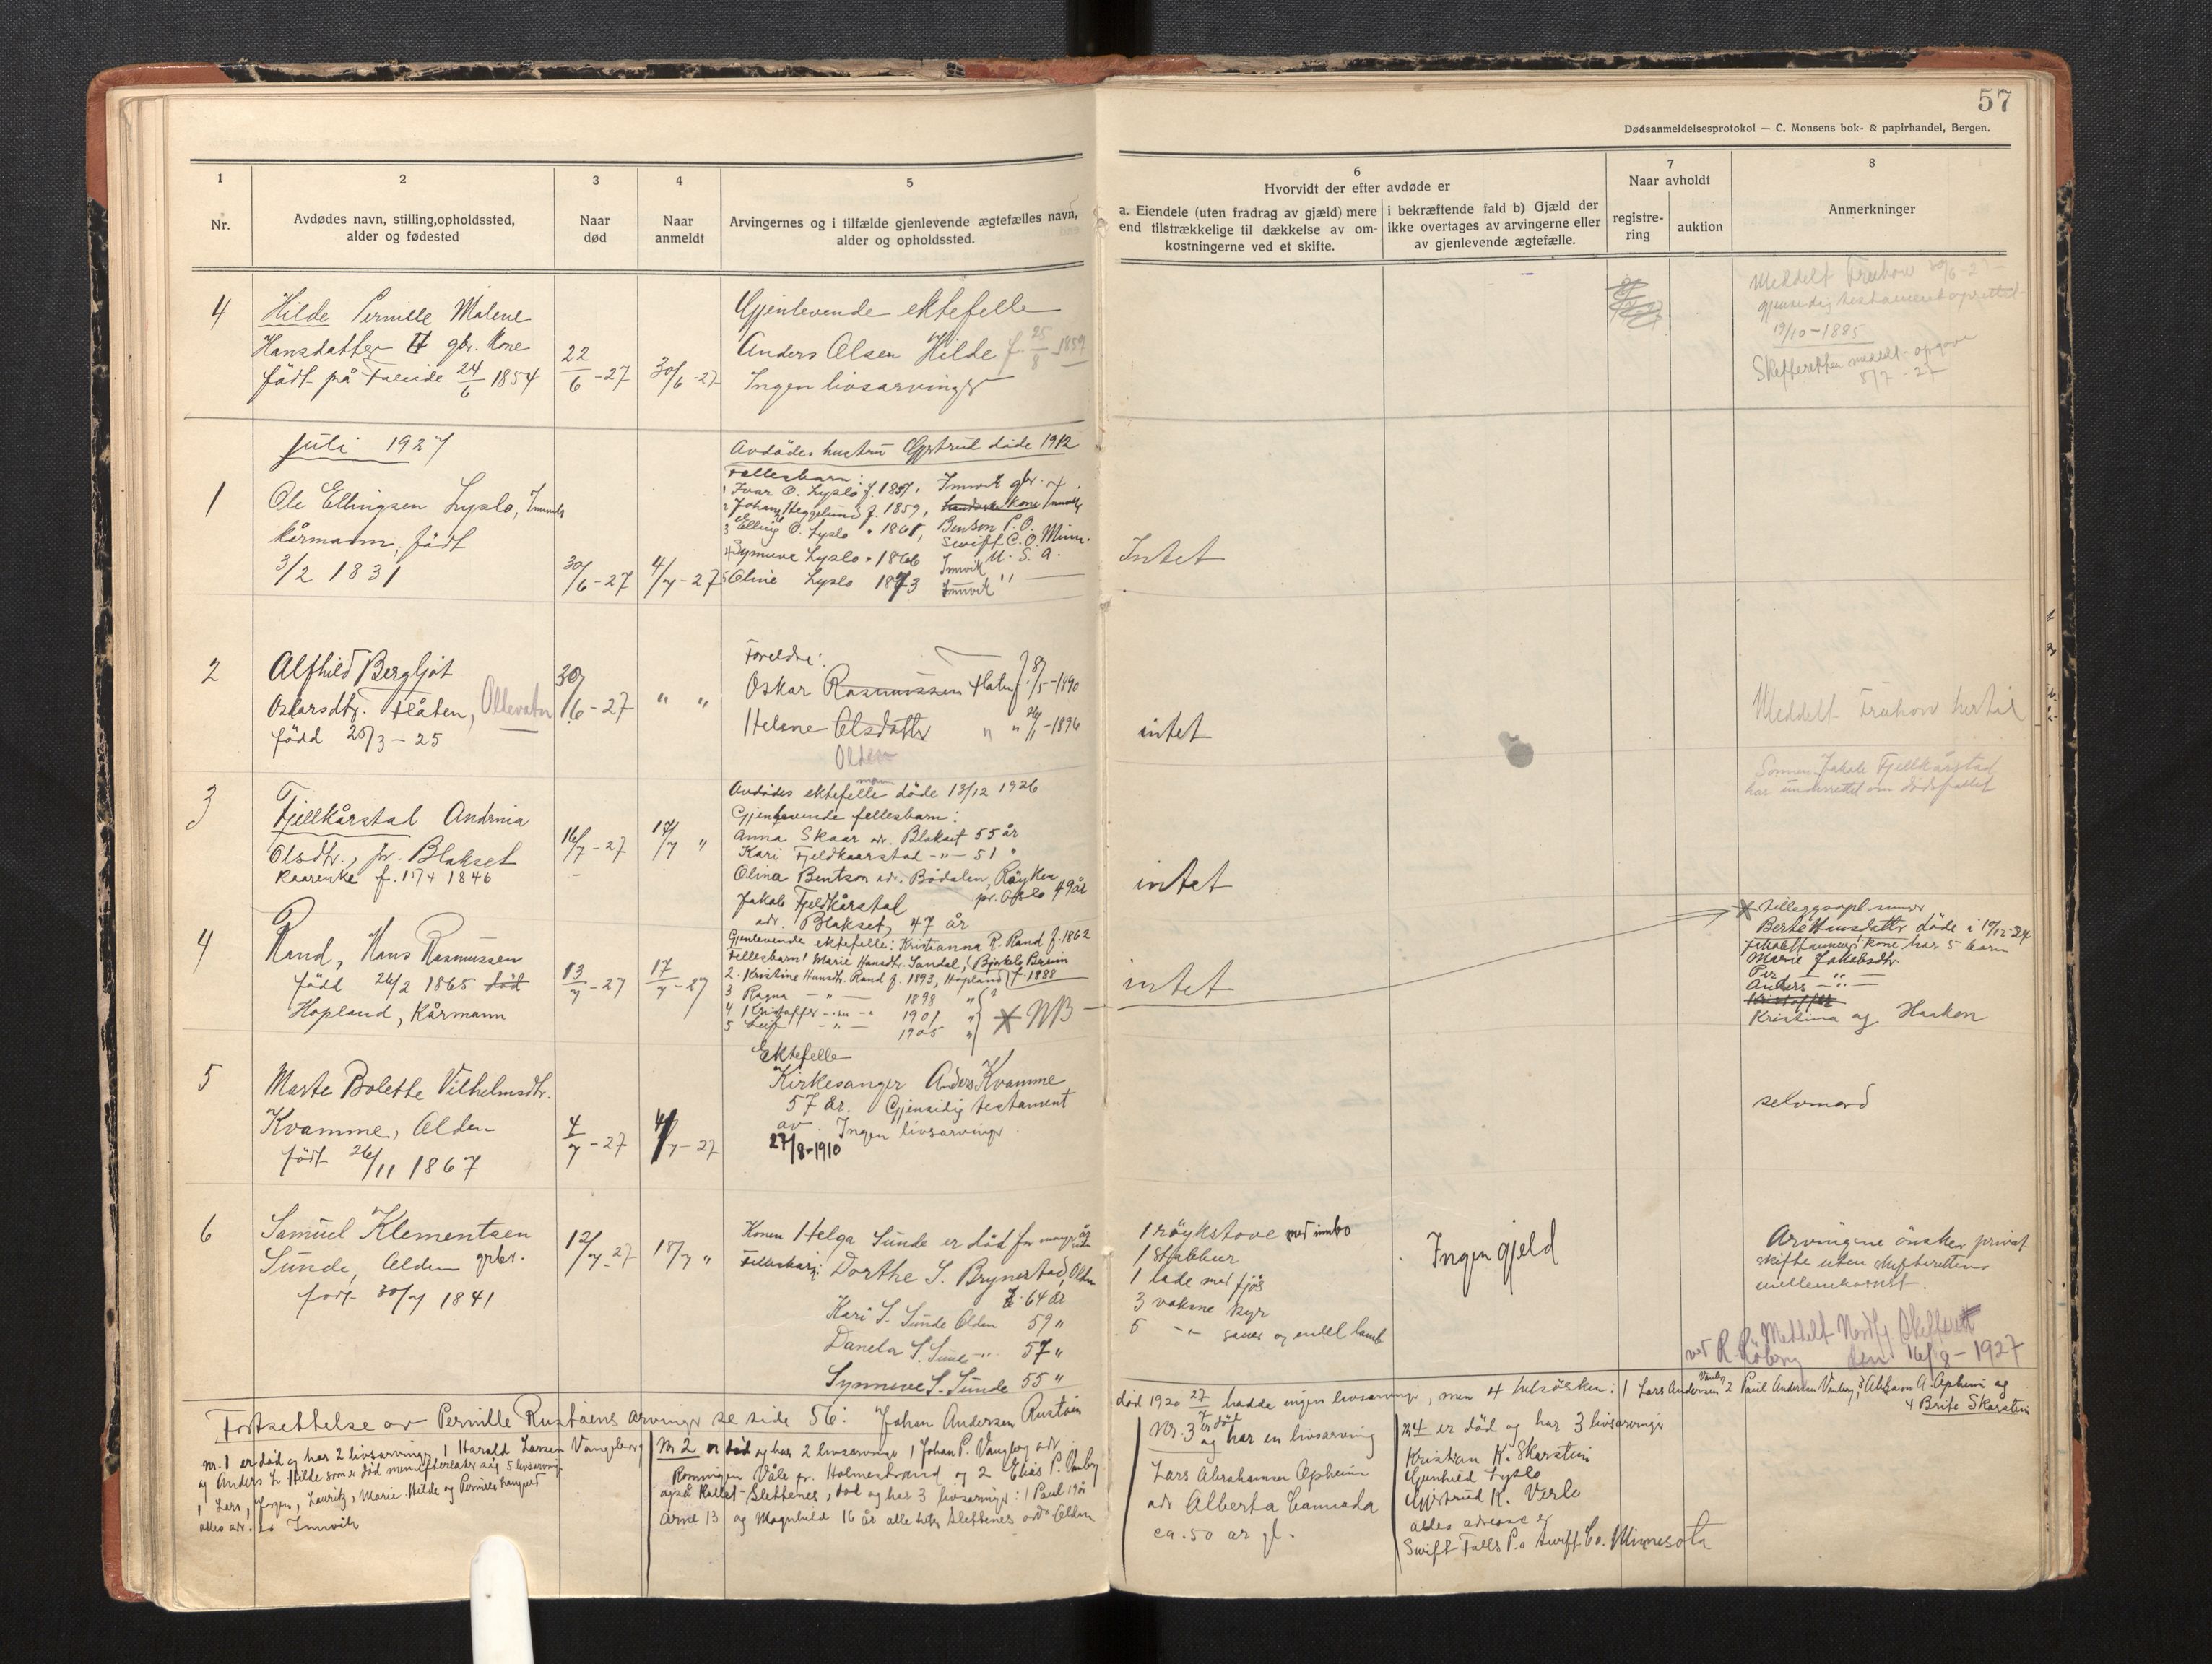 57
Dødsanmeldelsesprotokol — C. Monsens bok- & papirhandel, Bergen.
1
Nr.
2
Avdødes navn, stilling, opholdssted,
alder og fødested
3
Naar
død
4
Naar
anmeldt
5
Arvingernes og i tilfælde gjenlevende ægtefælles navn,
alder og opholdssted.
6
Hvorvidt der efter avdøde er
a. Eiendele (uten fradrag av gjæld) mere
end tilstrækkelige til dækkelse av om-
kostningerne ved et skifte.
i bekræftende fald b) Gjæld der
ikke overtages av arvingerne eller
av gjenlevende ægtefælle.
7
Naar avholdt
registre-
ring
auktion
8
Anmerkninger
4
Hilde Pernille Malene
Hansdatter gbr. kone
født på Faleide 24/6 1854
22/6 -27
30/6 -27
Gjenlevende ektefelle
Anders Olsen Hilde f. 25/8 1859
Ingen livsarvinger
Meddelt 30/6 -27
gjensidig testament oprettet
19/10-1885
Skifteretten meddelt opgave
5/7 -27
Juli 1927
1
Ole Ellingsen Lyslo, Innvik
kårmann, født
3/2 1831
30/6 -27
4/7 -27
Avdødes hustru Gjertrud døde 1912
Fellesbarn:
1 Ivar O. Lyslo f. 1857, Innvik gbr.
2 Johane Heggelund f. 1859, kone Innvik
3 Elling O. Lyslo " 1861, Benson P.O.
Swift C.O. Minn.
U.S.A.
4 Synnuve Lyslo " 1866 Innvik
5 Oline Lyslo 1873 Innvik "
Intet
2
Alfhild Bergljot
Oskarsdtr. Flåten, Oldevatn
född 25/3 - 25
30/6 -27
" "
Foreldre:
Oskar Rasmussen Flaten f. 8/5 -1890
Helene Olsdatter " " 26/11 -1896
Olden
intet
Meddelt
3
Fjellkårstad Andrina
Olsdtr., pr. Blakset
kaarenke f. 15/4 1846
16/7 -27
17/7 "
Avdødes ektefelle man døde 13/12 1926
Gjenlevende fellesbarn:
Anna Skaar adr. Blakset 55 år
Kari Fjeldkaarstad -"- 51 "
Olina Bentson adr. Bødalen, Røyken
pr. Oslo 49 år
Jakob Fjeldkårstad
adr. Blakset, 47 år
intet
Sønnen Jakob Fjellkårstad
har underrettet om dødsfallet
4
Rand, Hans Rasmussen
född 26/2 1865 død
Hopland, Kårmann
13/7 -27
17/7 -27
Gjenlevende ektefelle: Kristianna R. Rand f. 1862
Fellesbarn: 1 Marie Hansdtr. Sandal, (Bjørkelo Breim
2. Kristine Hansdtr. Rand f. 1893, Hopland f. 1888
3 Ragna -"- 1898 "
4 Kristoffer -"- 1901 "
5 Leif -"- 1905 "
* NB
intet
* tilleggsopl.
Berte Hansdatter døde i 19/12 -24
kone har 5 barn
Marie Jakobsdtr.
Per -"-
Anders -"-
Kristoffer
Kristina og Haakon
5
Marte Bolette Vilhelmsdtr.
Kvamme, Olden
født 26/11 1867
4/7 -27
4/7 -27
Ektefelle
Kirkesanger Anders Kvamme
57 år. Gjensidig testament
av Ingen livsarvinger
27/8-1910
selvmord
6
Samuel Klementsen
Sunde, Olden gbr.
født 30/7 1841
12/7 -27
18/7 "
Konen Helga Sunde er død for mange år siden
Fellesbarn: Dorthe S. Brynestad, Olden
64 år
Kari S. Sunde Olden 59 "
Danela S. Sunde -"- 57 "
Synneve S. Sunde 55 "
1 røykstove med innbo
1 Stabbur
1 løde med fjøs
3 voksne kyr
5 -"- sauer og endel lamb
Ingen gjeld
Arvingene ønsker privat
skifte uten skifterettens
mellemkomst.
Meddelt Nordfj. Skifterett
ved R. Röberg den 16/8 - 1927
Fortsettelse av Pernille Rustøens arvinger se side 56: Johan Andersen Rustøen
død 1920 27/7 hadde ingen livsarvinger, men 4 helsøsken: 1 Lars Andersen 2 Paul Andersen Vangberg, 3 Abraham A. Apheim og
4 Brite Skarstein
nr. 1 er død og har 2 livsarvinger 1 Harald Larsen Vangberg
og Anders L. Hilde som er død men efterlater sig 5 livsarvinger
1 Lars, Jørgen, Lauritz, Marie Hilde og Pernille
alles adr. er Innvik
Nr 2 er död og har 2 livsarvinger 1 Johan P. Vangberg adr.
Våle pr. Holmestrand og 2 Elias P. Vangberg
også kaldt Slettenes, død og har 3 livsarvinger: 1 Paul 19 år
Arne 13 og Magnhild 16 år alle heter Slettenes adr. Olden
Nr. 3 er død
og har en livsarving
Lars Abrahamsen Apheim
adr Alberta Cannada
ca. 50 år gl.
nr 4 er død og har 3 livsarvinger
Kristian K. Skarstein
Gunhild Lyslo
Gjertrud K. Verlo
alles adresse er
Swift Falls P.o Swift Co. Minnesota